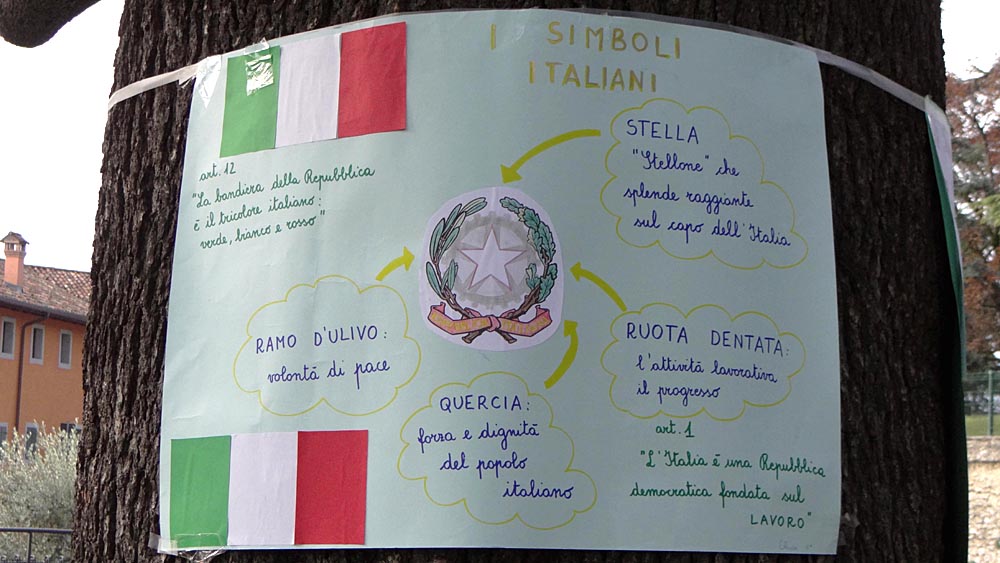 I SIMBOLI
ITALIANI
art. 12
"La bandiera della Repubblica
è il tricolore italiano:
verde, bianco e rosso"
STELLA
"Stellone" che
splende raggiante
sul capo dell'Italia
RAMO D'ULIVO:
volontà di pace
RUOTA DENTATA:
l'attività lavorativa
il progresso
QUERCIA:
forza e dignità
del popolo
italiano
art. 1
"L'Italia è una Repubblica
democratica fondata sul
LAVORO"